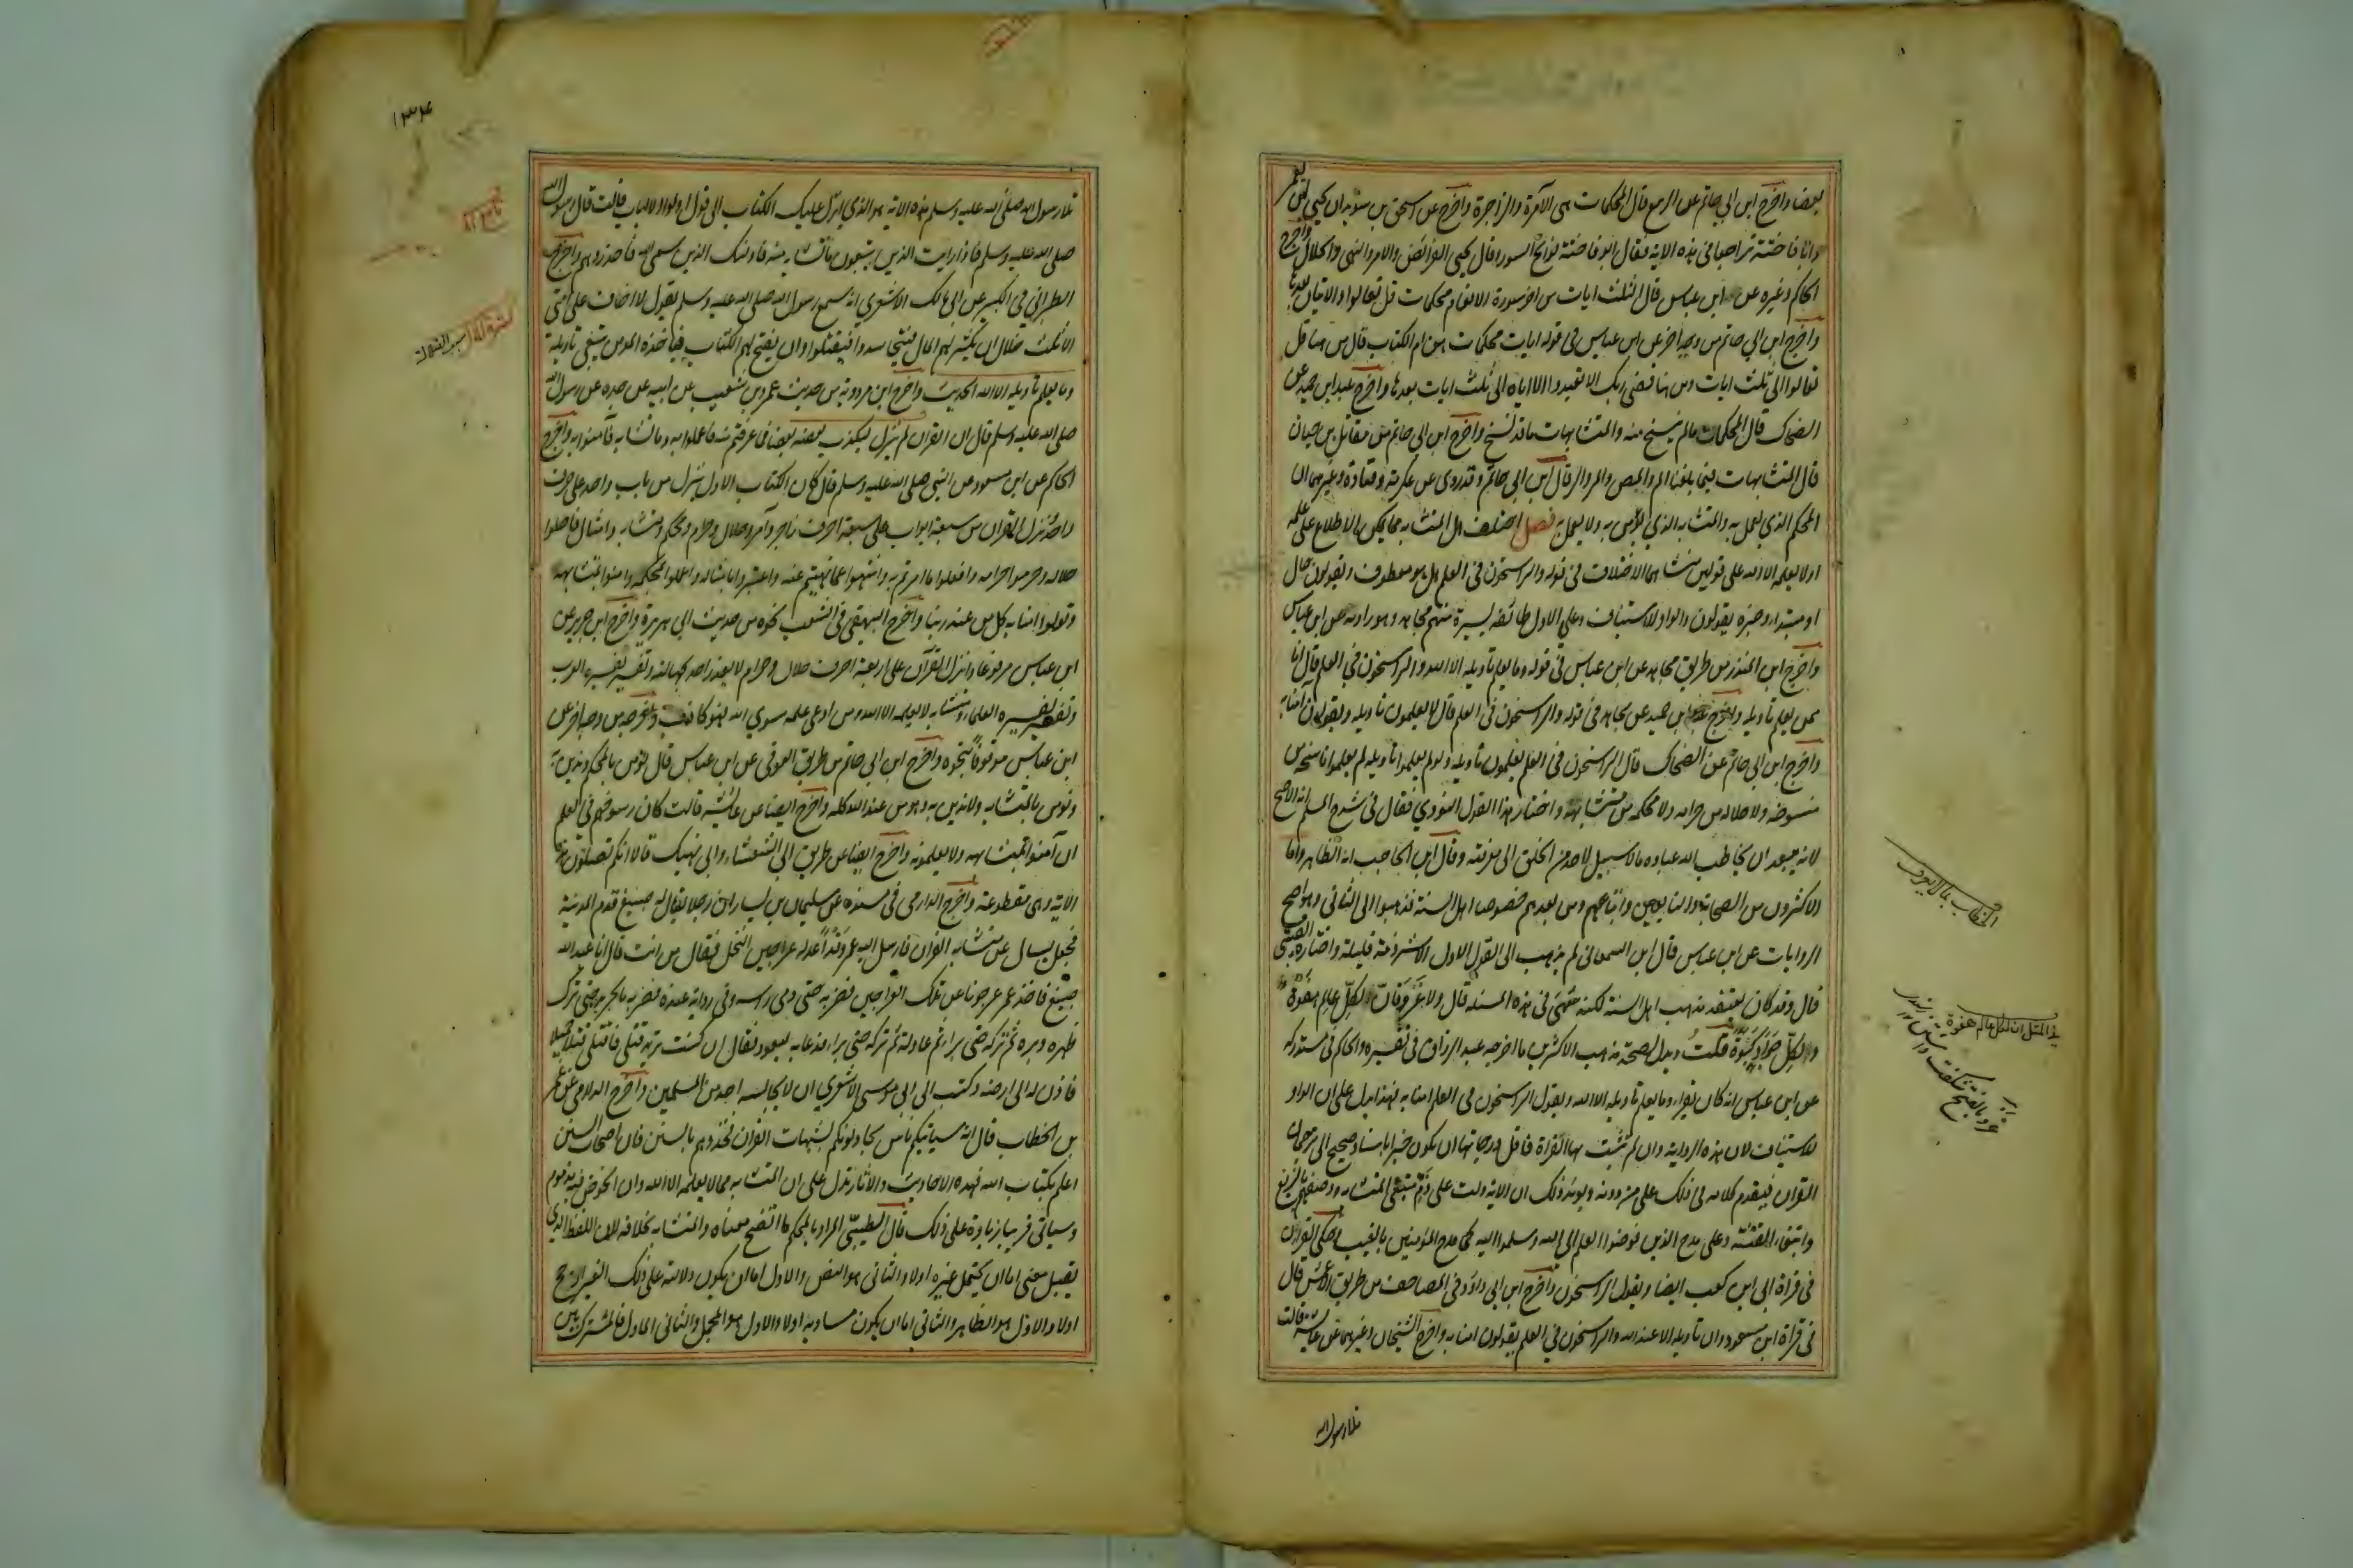 بعضا واخرج ابن ابى حاتم عن الربيع قال المحكمات هى الآمرة والزاجرة واخرج عن اسحق بن سويد ان يحيى بن يعمر
وابا فاختة تراجعا فى هذه الاية فقال ابو فاختة فواتح السور وقال يحيى الفرائض والامر والنهى والحلال واخرج
الحاكم وغيره عن ابن عباس قال الثلث ايات من اخر سورة الانعام محكمات قل تعالوا والايتان بعدها
واخرج ابن ابي حاتم من وجه اخر عن ابن عباس فى قوله ايات محكمات هن ام الكتاب قال من ههنا قل
تعالوا الى ثلث ايات ومن ههنا وقضى ربك الا تعبدوا الا اياه الى ثلث ايات بعدها واخرج عبد ابن حميد عن
الضحاك قال المحكمات مالم ينسخ منه والمتشابهات ما قد نسخ واخرج ابن ابى حاتم عن مقاتل بن حيان
قال المتشابهات فيما بلغنا الم والمص والمر والر قال ابن ابى حاتم وقد روى عن عكرمة وقتادة وغيرهما ان
المحكم الذى يعمل به والمتشابه الذي يؤمن به ولا يعمل به فصل اختلف هل المتشابه مما يمكن الاطلاع على علمه
اولا يعلمه الا الله على قولين منشاهما الاختلاف فى قوله والراسخون فى العلم هل هو معطوف ويقولون حال
او مبتداء وخبره يقولون والواو للاستيناف وعلى الاول طائفة يسيرة منهم مجاهد وهو رواية عن ابن عباس
واخرج ابن المنذر من طريق مجاهد عن ابن عباس فى قوله وما يعلم تاويله الا الله والراسخون فى العلم قال انا
ممن يعلم تاويله واخرج عبد ابن حميد عن مجاهد فى قوله والراسخون فى العلم قال يعلمون تاويله ويقولون آمنا به
واخرج ابن ابى حاتم عن الضحاك قال الراسخون فى العلم يعلمون تاويله ولو لم يعلموا تاويله لم يعلموا ناسخه من
منسوخه ولا حلاله من حرامه ولا محكمه من متشابهه واختار هذا القول النووي فقال فى شرح المسلم انه الاصح
لانه يبعد ان يخاطب الله عباده بما لا سبيل لاحد من الخلق الى معرفته وقال ابن الحاجب انه الظاهر واما
الاكثرون من الصحابة والتابعين واتباعهم ومن بعدهم خصوصا اهل السنة فذهبوا الى الثانى وهو اصح
الروايات عن ابن عباس قال ابن السمعانى لم يذهب الى القول الاول الا شرذمة قليلة واختاره القتبى
قال وقد كان يعتقد مذهب اهل السنة لكنه سهى فى هذه المسئلة قال ولا غرو فان لكل عالم هفوة
ولكل جواد كبوة قلت ويدل لصحة مذهب الاكثرين ما اخرجه عبد الرزاق فى تفسيره والحاكم فى مستدركه
عن ابن عباس انه كان يقراء وما يعلم تاويله الا الله ويقول الراسخون فى العلم امنا به فهذا يدل على ان الواو
للاستيناف لان هذه الرواية وان لم تثبت بها القراة فاقل درجاتها ان يكون خبرا باسناد صحيح الى ترجمان
القران فيقدم كلامه فى ذلك على من دونه ويؤيد ذلك ان الاية دلت على ذم متبعى المتشابه ووصفهم بالزيغ
وابتغاء الفتنة وعلى مدح الذين فوضوا العلم الى الله وسلموا اليه كما مدح المؤمنين بالغيب وحكى الفراء ان
فى قراة ابى ابن كعب ايضا ويقول الراسخون واخرج ابن ابى داؤد فى المصاحف من طريق الاعمش قال
فى قراة ابن مسعود وان تاويله الا عند الله والراسخون فى العلم يقولون امنا به واخرج الشيخان وغيرهما عن عائشة قالت
تلا رسول الله
والخطاب بما لا يعرف
هذا المثل ان لكل عالم هفوة
غرو بالفتح شگفت داشتن
١٣٤
تلا رسول الله صلى الله عليه وسلم هذه الاية هو الذي انزل عليك الكتاب الى قوله اولوا الالباب قالت قال رسول الله
صلى الله عليه وسلم فاذا رايت الذين يتبعون ما تشابه منه فاولئك الذين سمى الله فاحذروهم واخرج
الطبرانى فى الكبير عن ابى مالك الاشعري انه سمع رسول الله صلى الله عليه وسلم يقول لا اخاف على امتى
الا ثلث خلال ان يكثر لهم المال فيتحاسدوا فيقتتلوا وان يفتح لهم الكتاب فياخذه المومن يبتغى تاويله
وما يعلم تاويله الا الله الحديث واخرج ابن مردويه من حديث عمرو بن شعيب عن ابيه عن جده عن رسول الله
صلى الله عليه وسلم قال ان القران لم ينزل ليكذب بعضه بعضا فما عرفتم منه فاعملوا به وما تشابه فآمنوا به واخرج
الحاكم عن ابن مسعود عن النبى صلى الله عليه وسلم قال كان الكتاب الاول ينزل من باب واحد على حرف
واحد ونزل القران من سبعة ابواب على سبعة احرف زاجر وآمر وحلال وحرام ومحكم ومتشابه وامثال فاحلوا
حلاله وحرموا حرامه وافعلوا ما امرتم به وانتهوا عما نهيتم عنه واعتبروا بامثاله واعملوا بمحكمه وامنوا بمتشابهه
وقولوا امنا به كل من عند ربنا واخرج البيهقى فى الشعب نحوه من حديث ابى هريرة واخرج ابن جرير عن
ابن عباس مرفوعا انزل القرآن على اربعة احرف حلال وحرام لا يعذر احد بجهالته وتفسير تفسره العرب
وتفسير تفسره العلماء ومتشابه لا يعلمه الا الله ومن ادعى علمه سوى الله فهو كاذب واخرجه من وجه اخر عن
ابن عباس موقوفا بنحوه واخرج ابن ابى حاتم من طريق العوفى عن ابن عباس قال نؤمن بالمحكم وندين به
ونؤمن بالمتشابه ولا ندين به وهو من عند الله كله واخرج ايضا عن عائشة قالت كان رسوخهم فى العلم
ان آمنوا بمتشابهه ولا يعلمونه واخرج ايضا من طريق ابى الشعثاء وابى نهيك قالا انكم تصلون هذه
الاية وهى مقطوعة واخرج الدارمى فى مسنده عن سليمان بن يسار ان رجلا يقال له صبيغ قدم المدينة
فجعل يسال عن متشابه القران فارسل اليه عمر وقد اعد له عراجين النخل فقال من انت قال انا عبد الله
صبيغ فاخذ عمر عرجونا من تلك العراجين فضربه حتى دمى راسه وفى رواية عنده فضربه بالجريد حتى ترك
ظهره دبره ثم تركه حتى براء ثم عاد له ثم تركه حتى براء فدعا به ليعود فقال ان كنت تريد قتلى فاقتلنى قتلا جميلا
فاذن له الى ارضه وكتب الى ابى موسى الاشعري ان لا يجالسه احد من المسلمين واخرج الدارمى عن عمر
بن الخطاب قال انه سياتيكم ناس يجادلونكم بشبهات القران فخذوهم بالسنن فان اصحاب السنن
اعلم بكتاب الله فهذه الاحاديث والآثار تدل على ان المتشابه مما لا يعلمه الا الله وان الخوض فيه مذموم
وسياتى قريبا زيادة على ذلك قال الطيبى المراد بالمحكم ما اتضح معناه والمتشابه بخلافه لان اللفظ الذى
يقبل معنى اما ان يحتمل غيره اولا والثانى هو النص والاول اما ان يكون دلالته على ذلك الغير ارجح
اولا والاول هو الظاهر والثانى اما ان يكون مساويه اولا والاول هو المجمل والثانى الماول فالمشترك بين